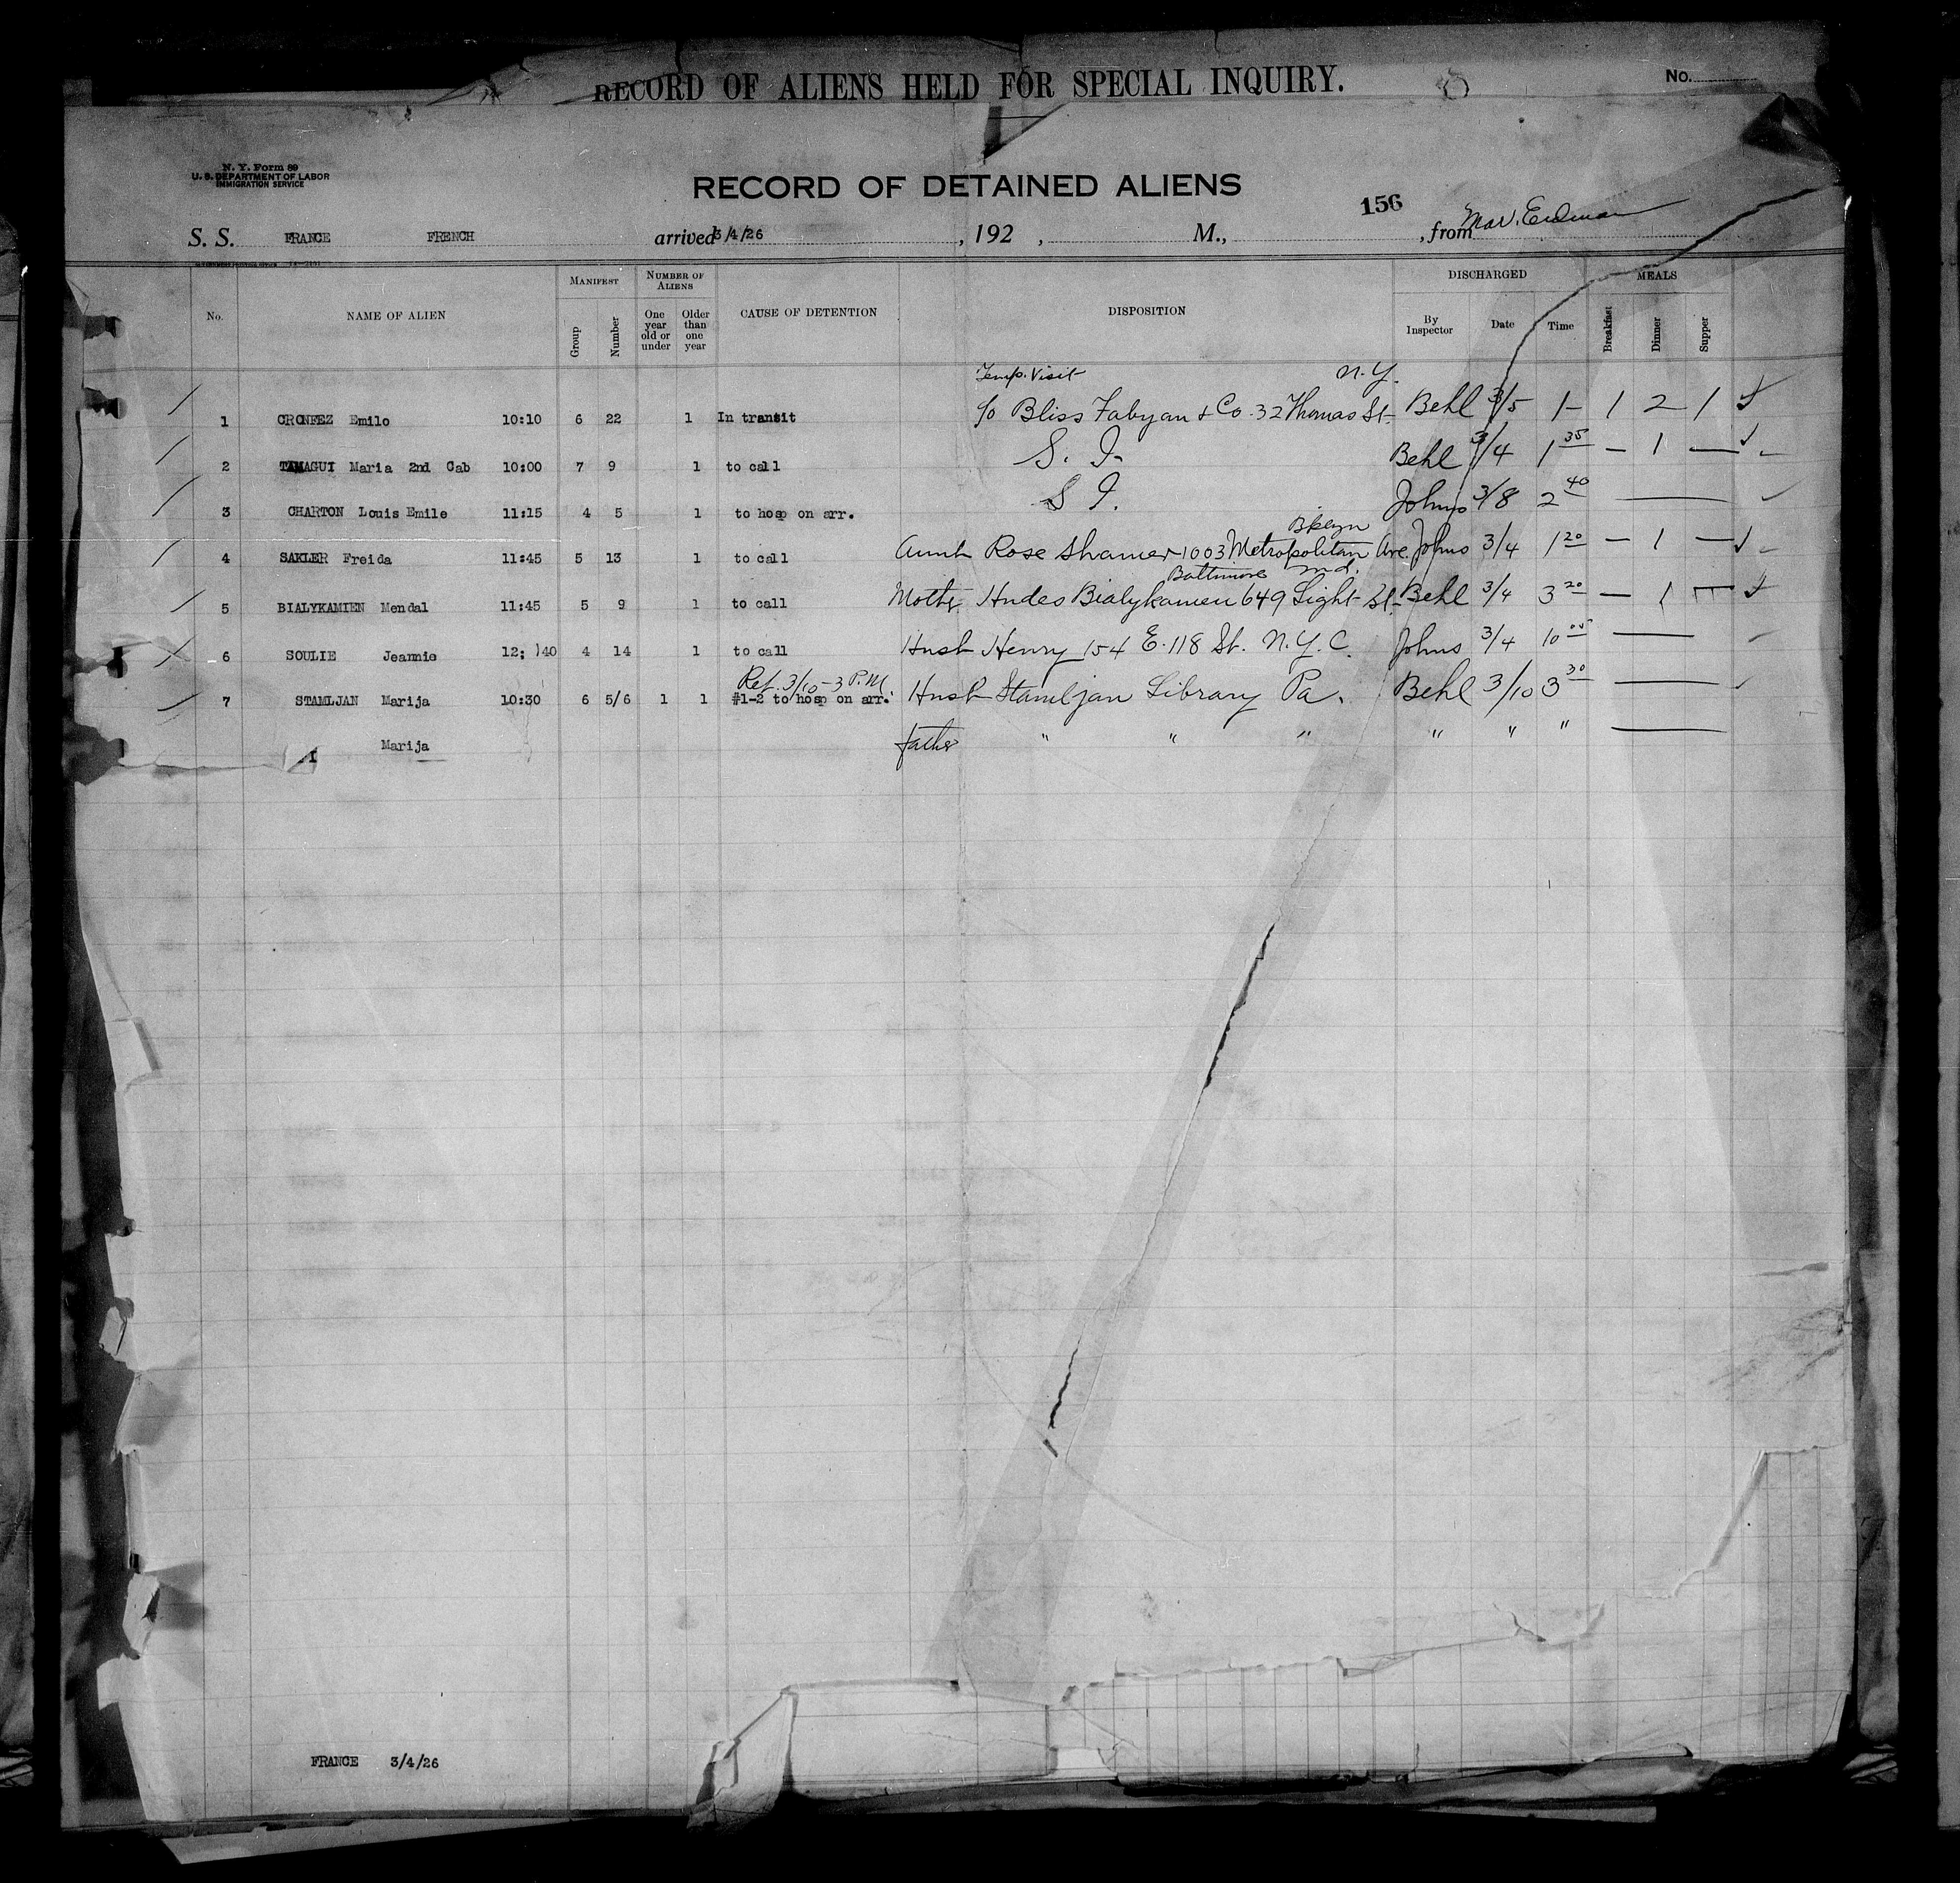 RECORD OF ALIENS HELD FOR SPECIAL INQUIRY.
No.
N. Y. Form 89
U. S. DEPARTMENT OF LABOR
IMMIGRATION SERVICE
RECORD OF DETAINED ALIENS
156
S. S. FRANCE FRENCH arrived 3/4/26 , 192 , M., , from
No. NAME OF ALIEN MANIFEST Group Number NUMBER OF ALIENS One year old or under Older than one year CAUSE OF DETENTION DISPOSITION DISCHARGED By Inspector Date Time MEALS Breakfast Dinner Supper
Temp. Visit N.Y.
1 CRONFEZ Emilo 10:10 6 22 1 In transit c/o Bliss Fabyan + Co. 32 Thomas St. Behl 3/5 1- 1 2 1 ✓
2 TAMAGUI Maria 2nd Cab 10:00 7 9 1 to call S. I. Behl 3/4 1 35 — 1 — ✓
3 CHARTON Louis Emile 11:15 4 5 1 to hosp on arr. S I. Johns 3/8 2 40 —
Bklyn
4 SAKLER Freida 11:45 5 13 1 to call Aunt Rose Shamer 1003 Metropolitan Ave. Johns 3/4 1 20 — 1 — ✓
Baltimore Md.
5 BIALYKAMIEN Mendal 11:45 5 9 1 to call Mother Hudes Bialykamen 649 Light St. Behl 3/4 3 20 — 1 ✓
6 SOULIE Jeannie 12: 40 4 14 1 to call Husb Henry 154 E. 118 St. N.Y.C. Johns 3/4 10 05 —
Ret. 3/10-3 P.M.
7 STAMLJAN Marija 10:30 6 5/6 1 1 #1-2 to hosp on arr. Husb Stamljan Library Pa. Behl 3/10 3 30 —
Marija father " " " " " " —
FRANCE 3/4/26